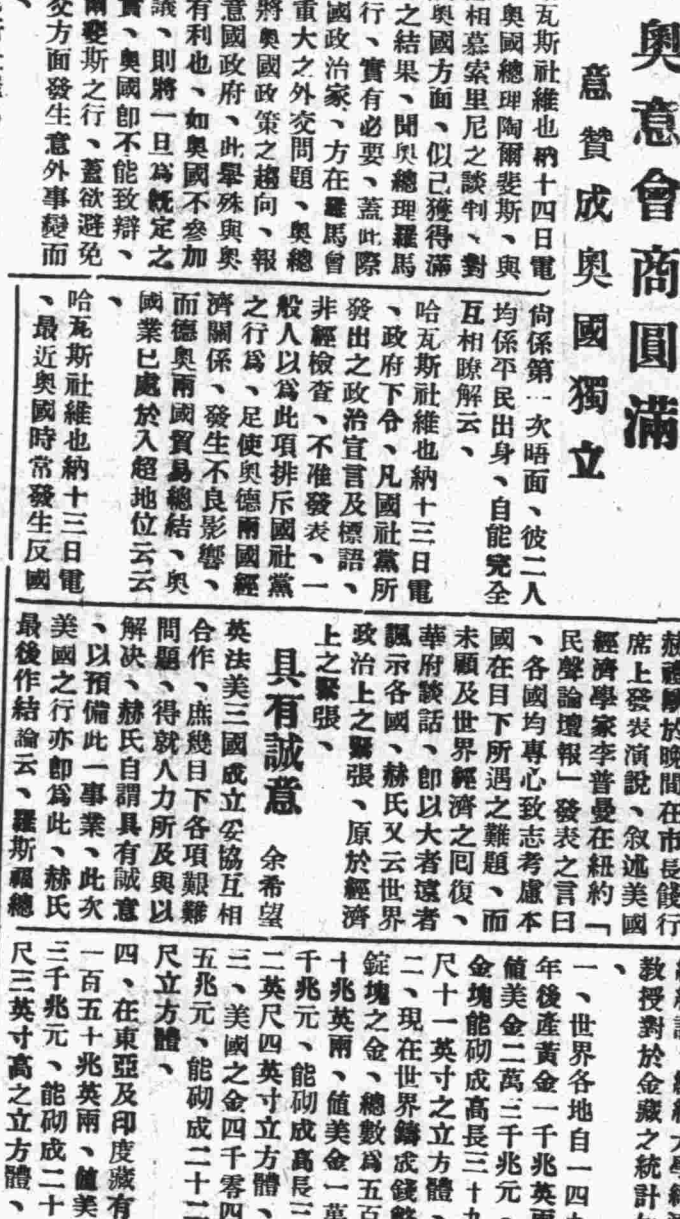 奧意會商圓滿
意贊成奧國獨立
瓦斯社維也納十四日電
奧國總理陶爾斐斯、與
相慕索里尼之談判、對
奧國方面、似已獲得滿
之結果、聞奧總理羅馬
行、實有必要、蓋此際
國政治家、方在羅馬會
重大之外交問題、奧總
將奧國政策之趨向、報
意國政府、此舉殊與奧
有利也、如奧國不參加
議、則將一旦爲既定之
實、奧國卽不能致辯、
爾斐斯之行、蓋欲避免
交方面發生意外事變而
尙係第一次晤面、彼二人
均係平民出身、自能完全
互相瞭解云、
哈瓦斯社維也納十三日電
、政府下令、凡國社黨所
發出之政治宣言及標語、
非經檢查、不准發表、一
般人以爲此項排斥國社黨
之行爲、足使奧德兩國經
濟關係、發生不良影響、
而德奧兩國貿易總結、奧
國業已處於入超地位云云
、
哈瓦斯社維也納十三日電
、最近奧國時常發生反國
赫禮歐於晚間在市長餞行
席上發表演說、叙述美國
經濟學家李普曼在紐約「
民聲論壇報」發表之言曰
、各國均專心致志考慮本
國在目下所遇之難題、而
未顧及世界經濟之回復、
華府談話、卽以大者遠者
諷示各國、赫氏又云世界
政治上之緊張、原於經濟
上之緊張、
具有誠意 余希望
英法美三國成立妥協互相
合作、庶幾目下各項艱難
問題、得就人力所及與以
解决、赫氏自謂具有誠意
、以預備此一事業、此次
美國之行亦卽爲此、赫氏
最後作結論云、羅斯福總
教授對於金藏之統計
、
一、世界各地自一四九
年後產黃金一千兆英兩
値美金二萬三千兆元、
金塊能砌成高長三十九
尺十一英寸之立方體、
二、現在世界鑄成錢幣
錠塊之金、總數爲五百
十兆英兩、値美金一萬
千兆元、能砌成高長三
二英尺四英寸立方體、
三、美國之金四千零四
五兆元、能砌成二十二
尺立方體、
四、在東亞及印度藏有
一百五十兆英兩、値美
三千兆元、能砌成二十
尺三英寸高之立方體、